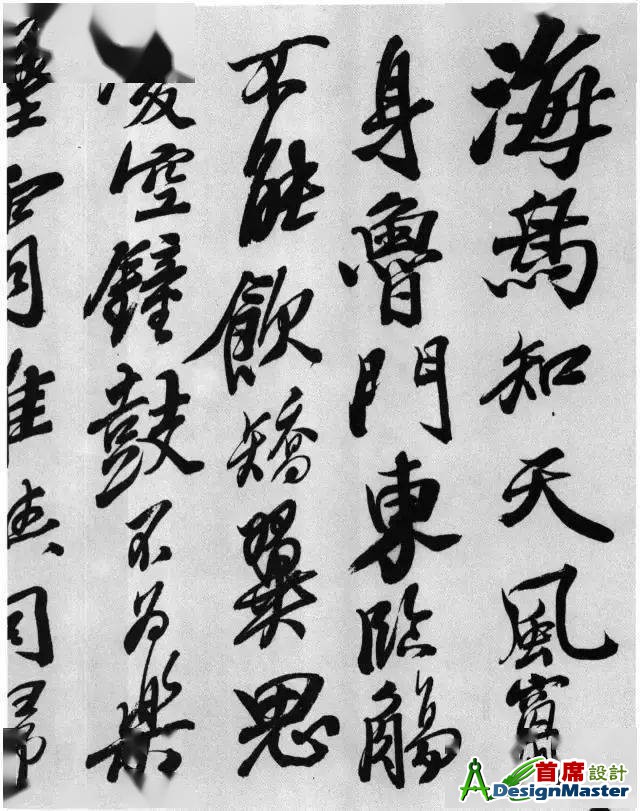 海鳥知天風竄
身魯門東臨觴
不能飲矯翼思
凌空鐘鼓不為樂
同歸
首席設計
ADesignMaster